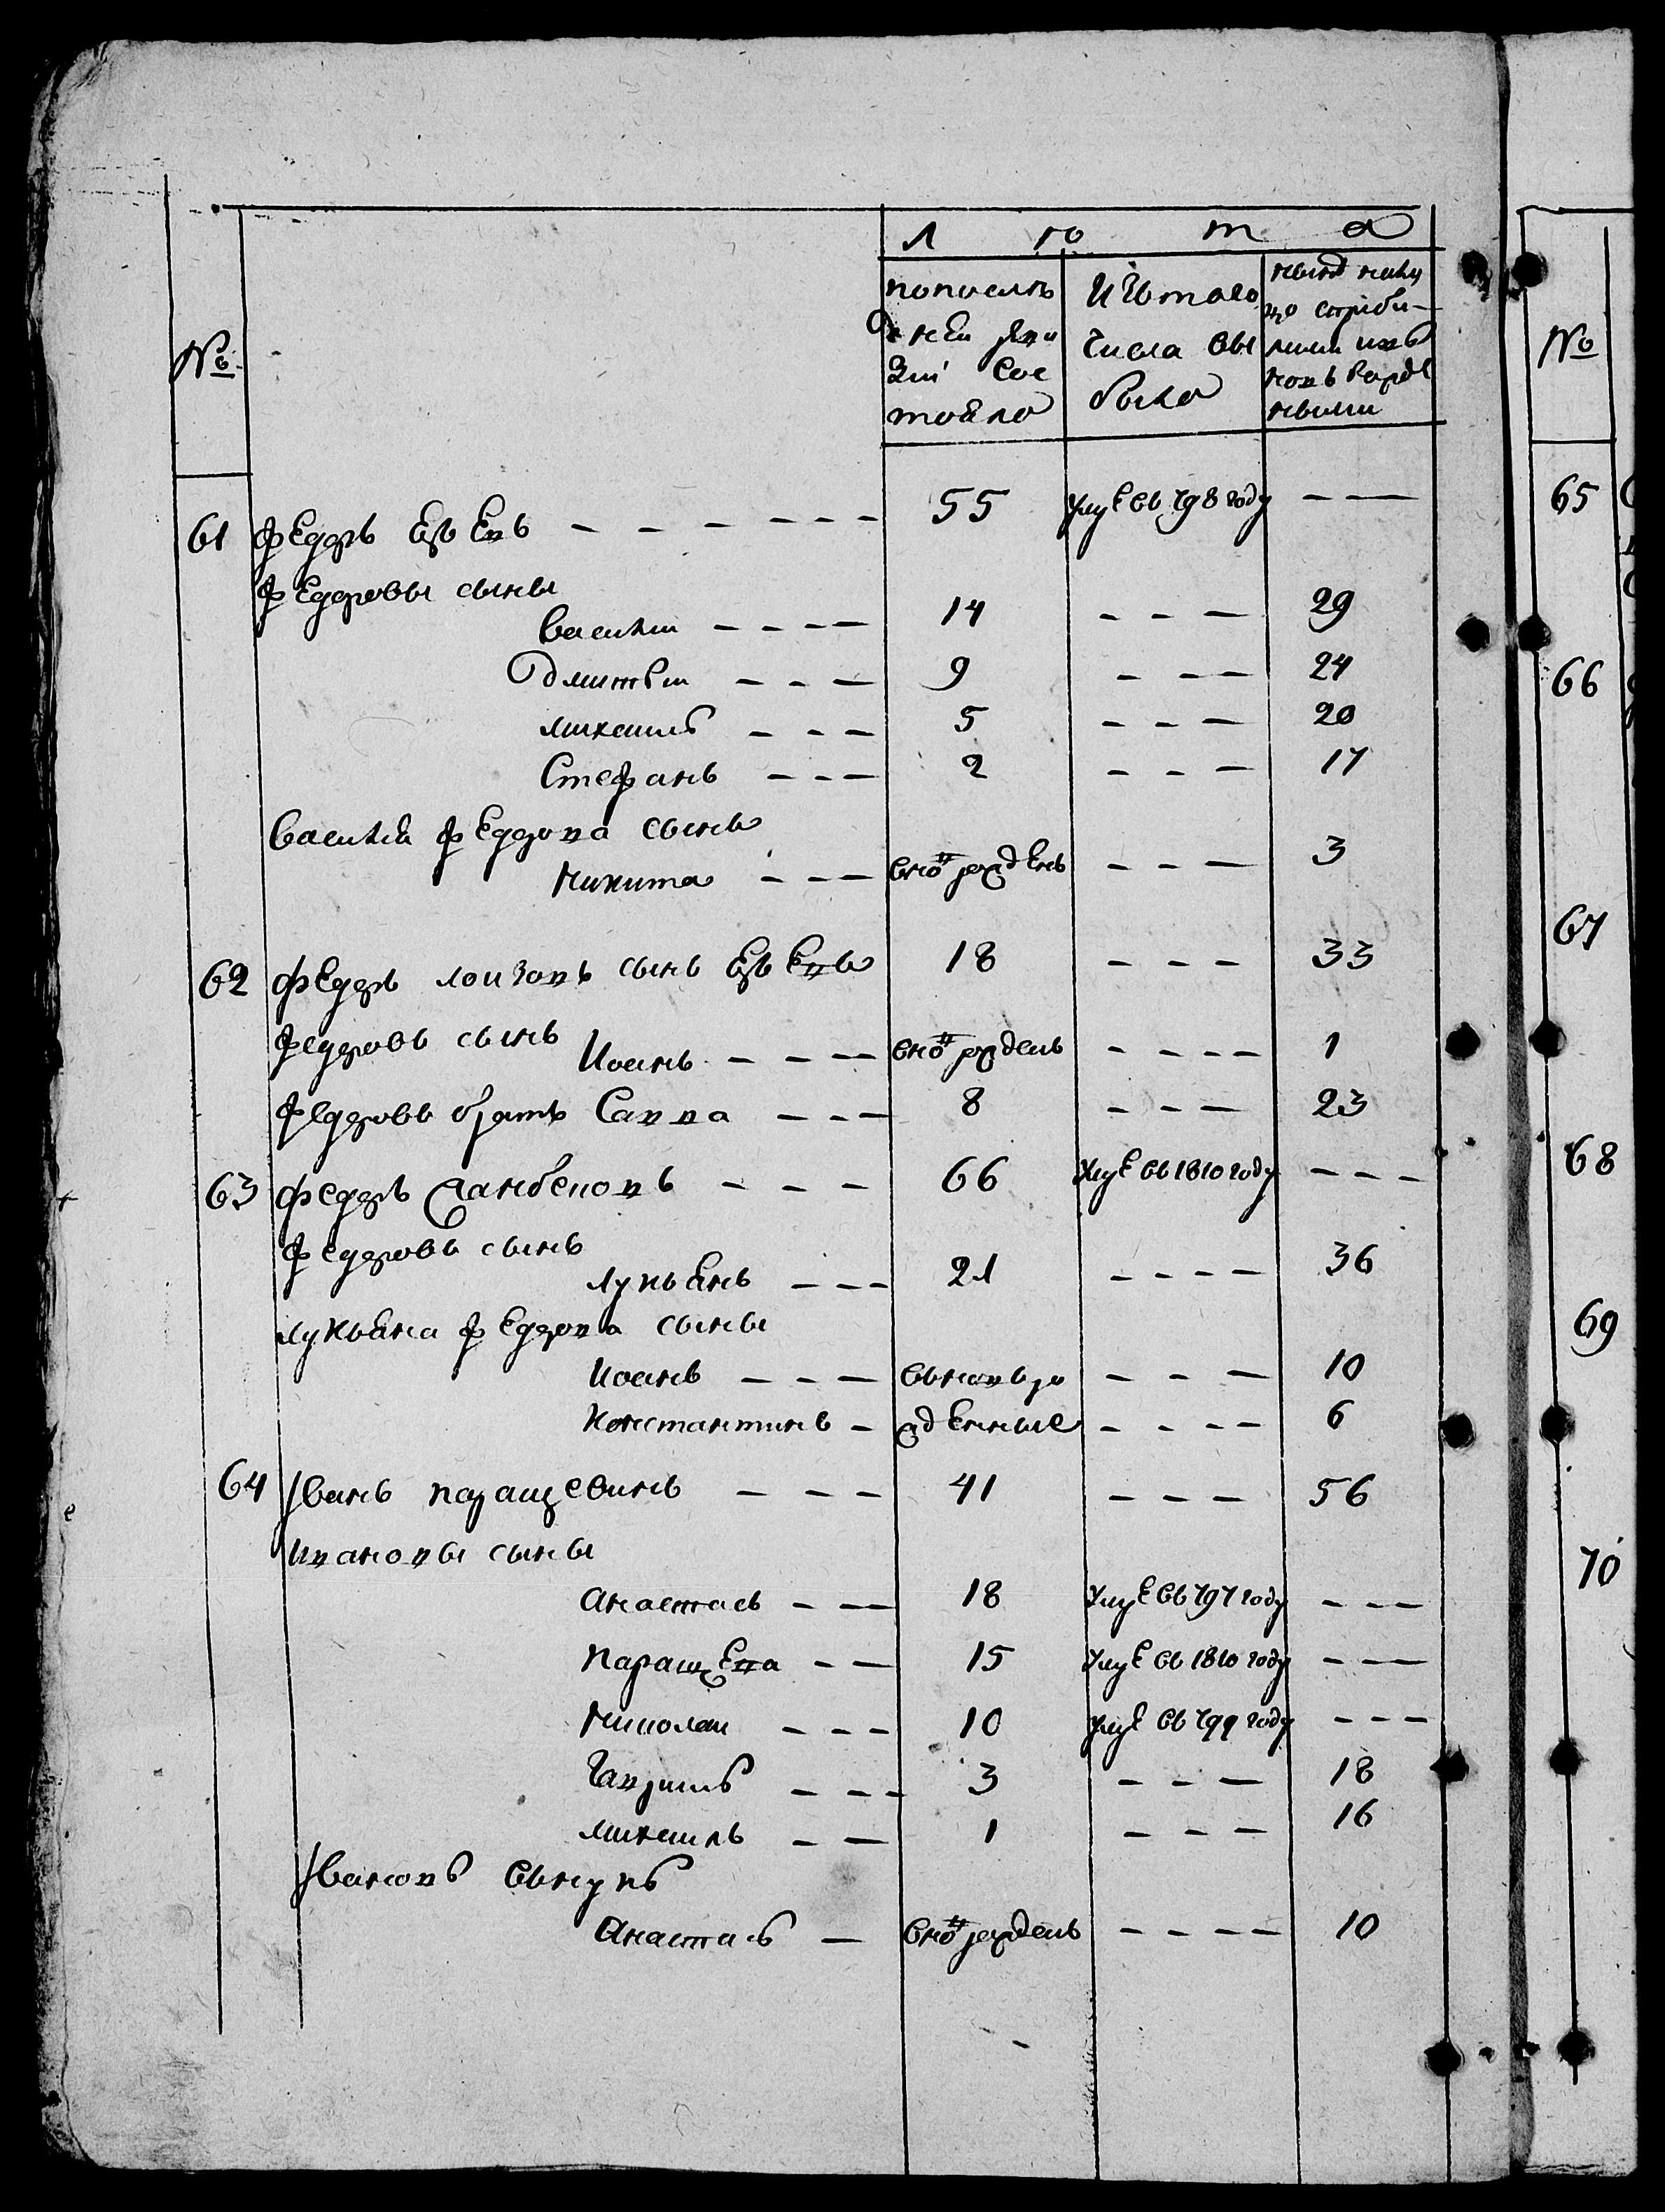 Л ѣ т а
№
по послѣ
дней реви
зіи сос
тояло
И съ того
числа вы
было
нынѣ на
ли
№
61 Федоръ
55 умре въ 798 году — —
Федоровы сыны
Василии — — — — 14 — — — 29
Дмитреи — — — 9 — — — 24
Михаилъ — — — 5 — — — 20
Стефанъ — — — 2 — — — 17
Василия Федорова сынъ
Никита — — — вно рожденъ — — — 3
62 Федоръ сынъ 18 — — — 33
Федоровъ сынъ Иоанъ — — — вно рожденъ — — — — 1
Федоровъ братъ Савва — — — 8 — — — 23
63 Федоръ — — — 66 умре въ 1810 году — — —
Федоровъ сынъ
Лукьянъ — — — 21 — — — — 36
Лукьяна Федорова сыны
Иоанъ — — — вьновь ро — — — 10
Константинъ — жденные — — — — 6
64 Иванъ Паращевинъ — — — 41 — — — 56
Ивановы сыны
Анастасъ — — 18 умре въ 797 году — — —
Паращева — — 15 умре въ 1810 году — — —
Николаи — — — 10 умре въ 799 году — — —
Гаврилъ — — — 3 — — — 18
Михаилъ — — 1 — — — 16
Ивановъ вънукъ
Анастасъ — вно рожденъ — — — — 10
65
66
67
68
69
70